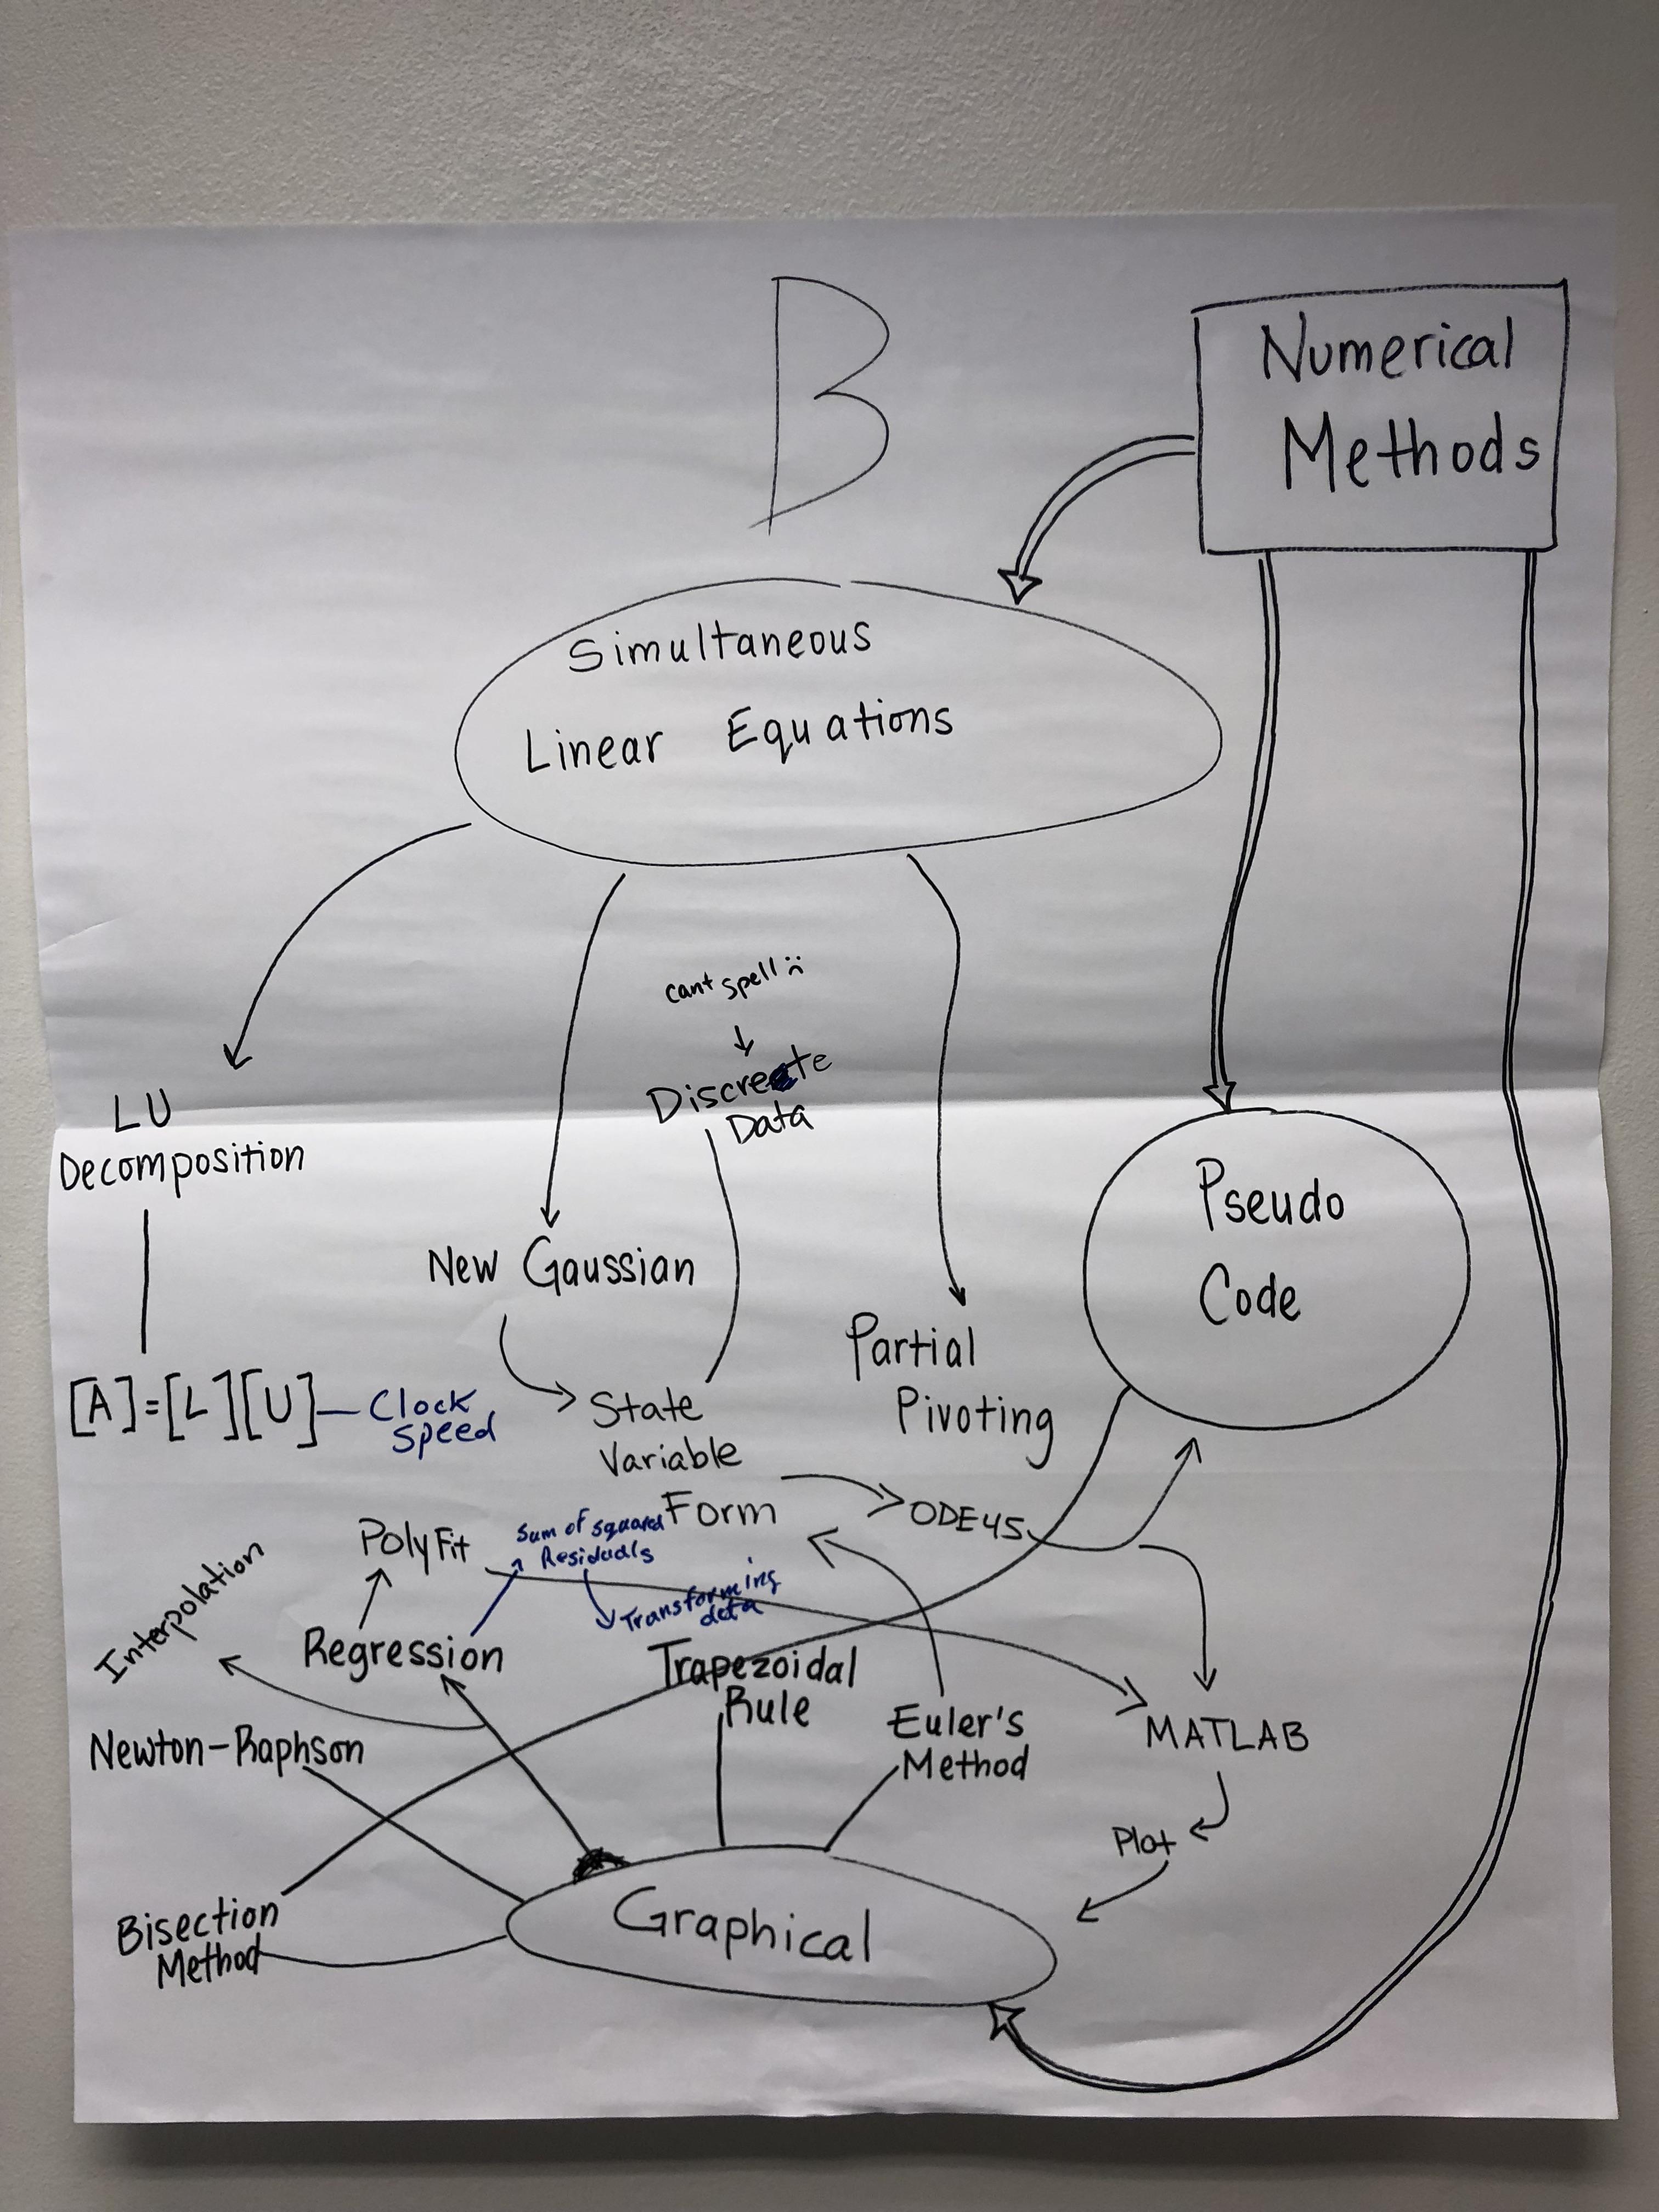 B
Numerical
Methods
Simultaneous
Linear Equations
cant spell :(
Discrete
Data
LU
Decomposition
Pseudo
Code
New Gaussian
Partial
Pivoting
[A]=[L][U]
Clock
Speed
State
Variable
Form
ODE45
PolyFit
Sum of squared
Residuals
Transforming
data
Interpolation
Regression
Trapezoidal
Rule
Euler's
Method
MATLAB
Newton-Raphson
Plot
Bisection
Method
Graphical